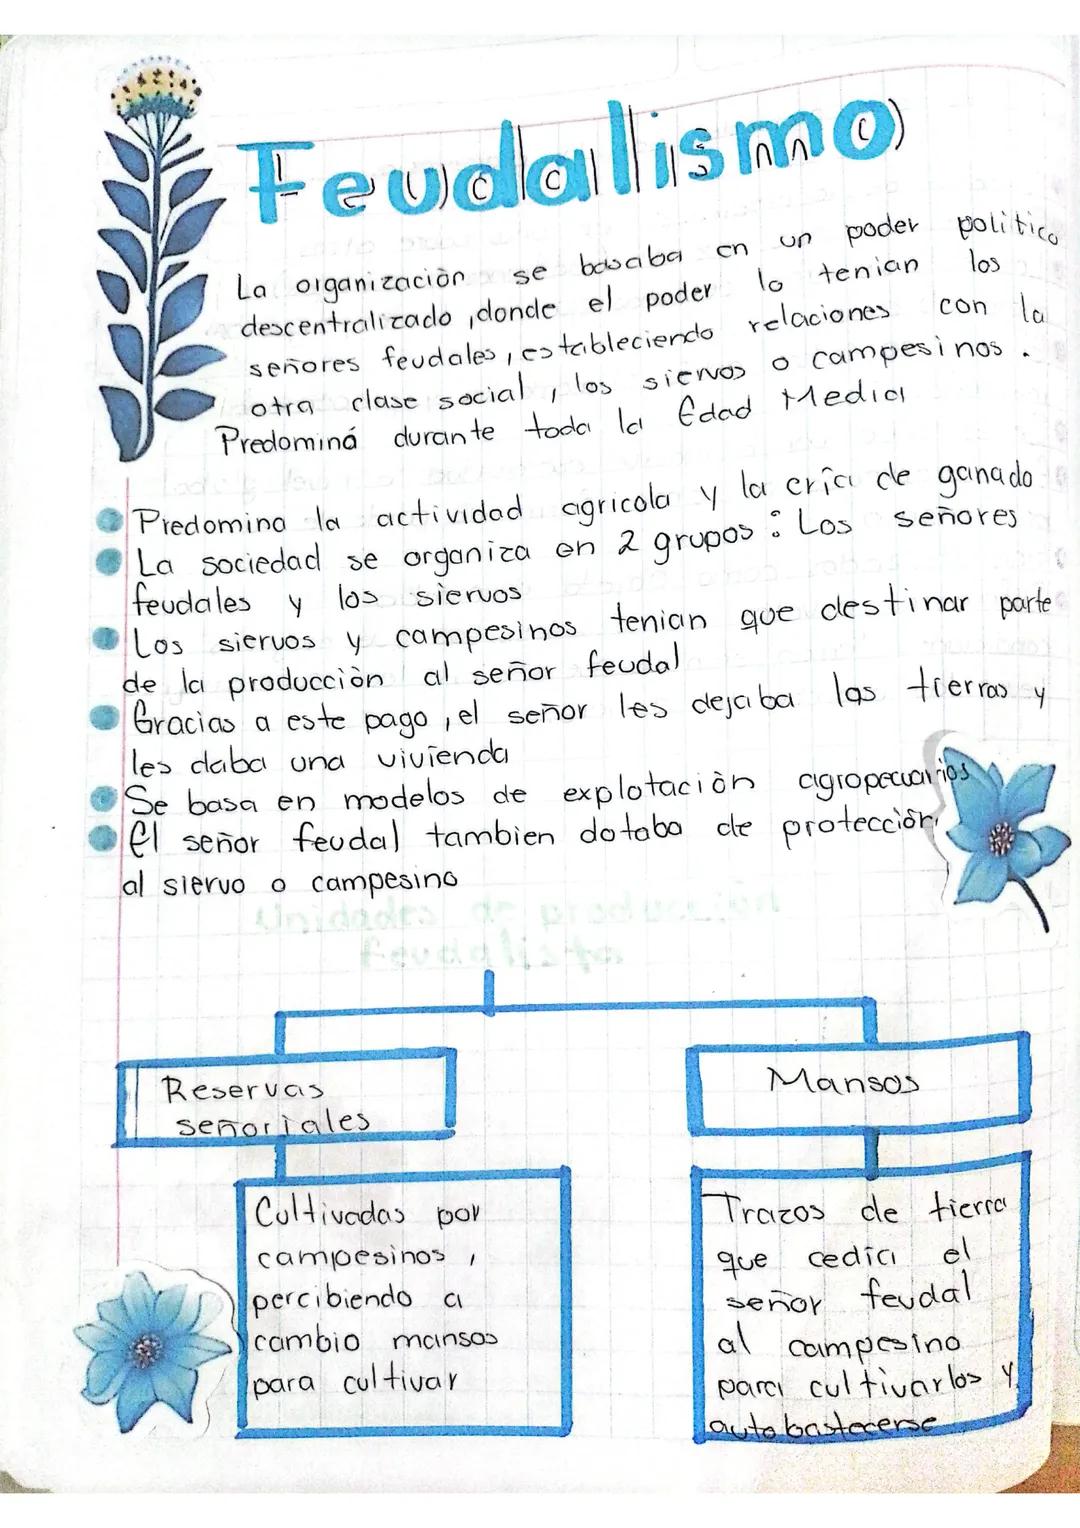 Feudalismo
La organizaciòn se basaba en un poder politico
descentralizado, donde el poder lo tenian los
señores feudales, estableciendo relaciones con la
otra clase social, los siervos o campesinos.
Predominá durante toda la Edad Media
Predomina la actividad agricola y la crîa de ganado
La sociedad se organiza en 2 grupos: Los señores
feudales y los siervos
Los siervos y campesinos tenian que destinar parte
de la producciòn al señor feudal
Gracias a este pago, el señor les dejaba las tierras y
les daba una vivienda
Se basa en modelos de explotaciòn agropecuarios
El señor feudal tambien dotaba de protecciòn
al siervo o campesino
Unidades de producciòn
feudalista
Reservas
señoriales
Mansos
Cultivadas por
campesinos,
percibiendo a
cambio mansos
para cultivar
Trazos de tierra
que cedia el
señor feudal
al campesino
para cultivarlos y
autobastecerse